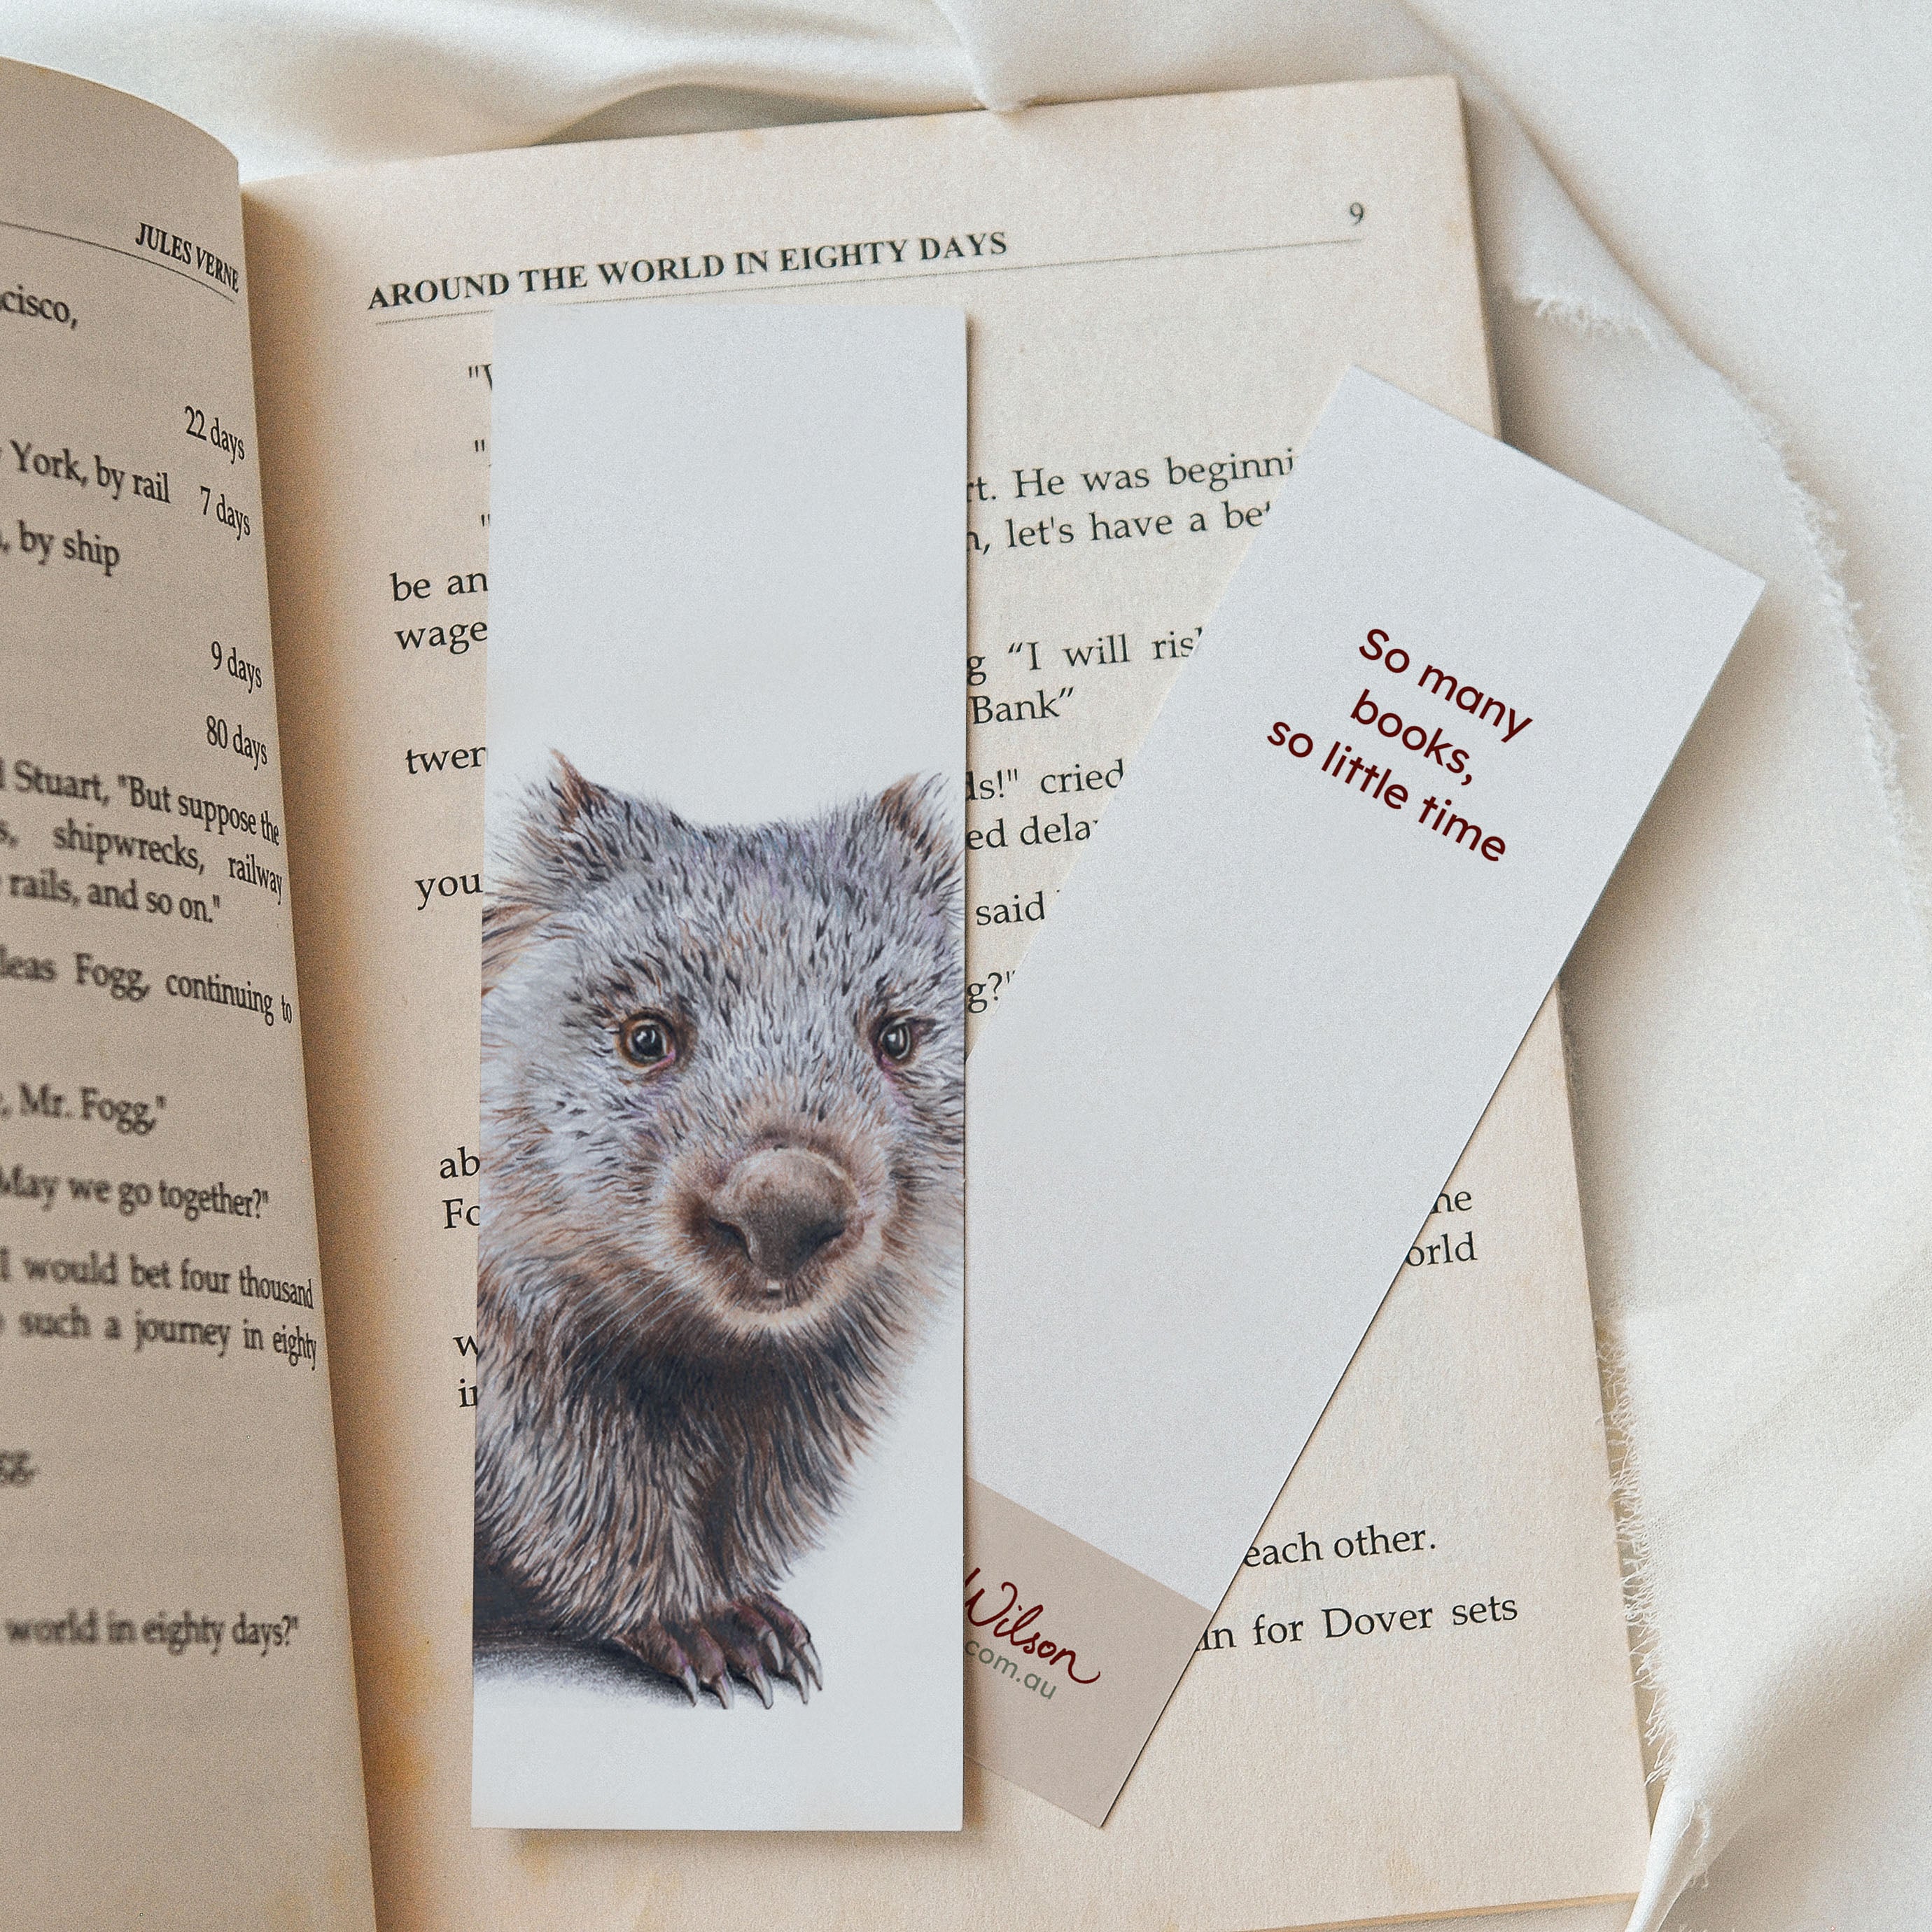 JULES VERNE
22 days
York, by rail 7 days
by ship
9 days
80 days
Stuart, "But suppose the
shipwrecks, railway
rails, and so on."
Fogg, continuing to
Mr. Fogg,"
May we go together?"
I would bet four thousand
such a journey in eighty
world in eighty days?"
AROUND THE WORLD IN EIGHTY DAYS 9
He was beginni
let's have a
be an
wage
"I will
Bank"
twer
cried
ed
you
said
ab
w
each other.
for Dover sets
So many
books,
so little time
Wilson
com.au